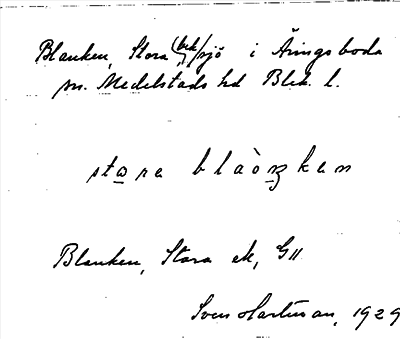 Blanken, Stora (ek/sjö i Äringsboda
sn. Medelstads hd Blek. l.
stora blàọnken
Blanken, Stora ek, G11
Sven Hartman, 1929